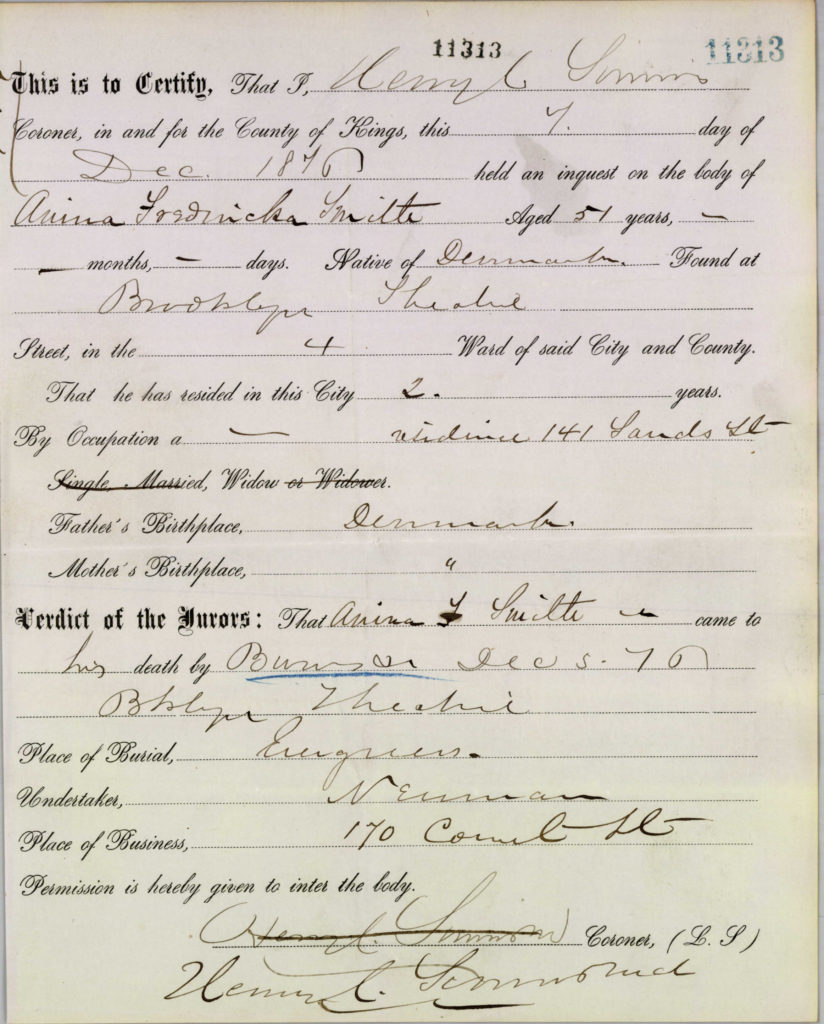 11313 11313
This is to Certify, That I, Henry C Simms
Coroner, in and for the County of Kings, this 7. day of
Dec. 1876 held an inquest on the body of
Anina Fredricka Smitte Aged 51 years, —
— months, — days. Native of Denmark. Found at
Brooklyn Theatre
Street, in the 4 Ward of said City and County.
That he has resided in this City 2. years.
By Occupation a — residence 141 Sands St
Single, Married, Widow or Widower.
Father's Birthplace, Denmark.
Mother's Birthplace, "
Verdict of the Jurors: That Anina F Smitte came to
his death by Dec 5. 76
Bklyn Theatre
Place of Burial, Evergreens.
Undertaker, Newman
Place of Business, 170 Court St
Permission is hereby given to inter the body.
Henry C. Simms Coroner, (L. S)
Henry C. Simms